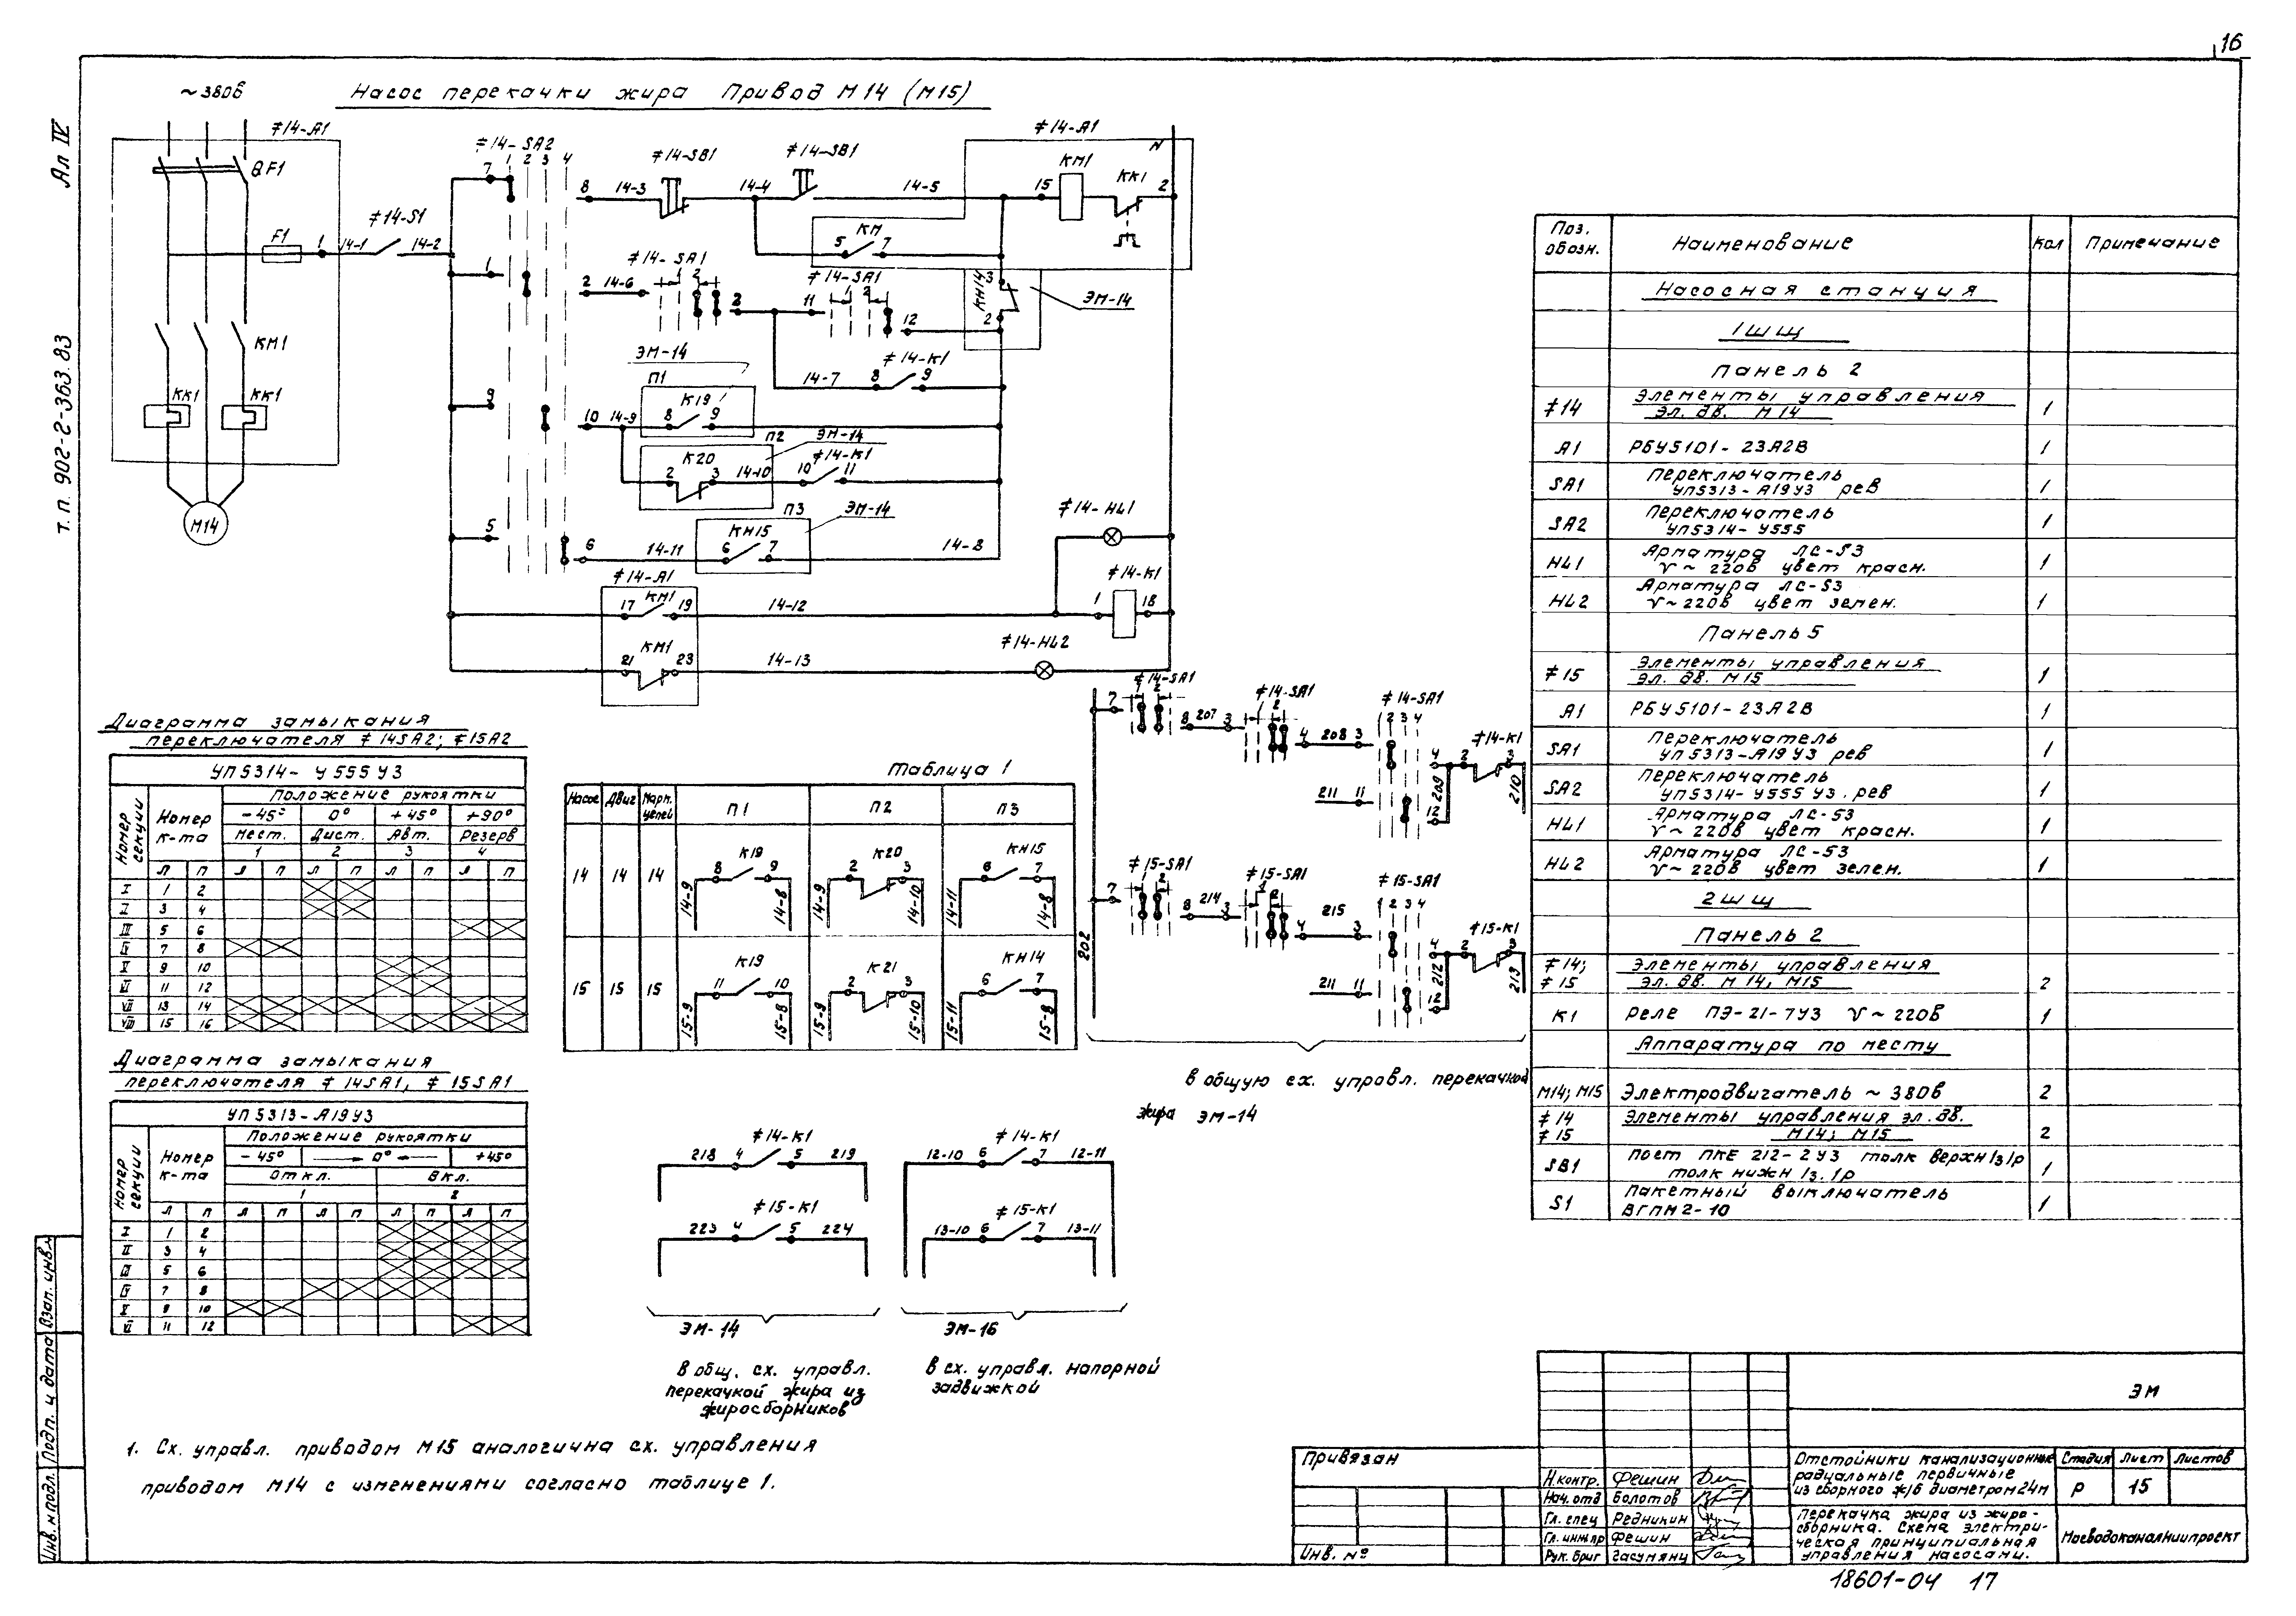 16
Ал IV
т. п. 902-2-363.83
~380в
Насос перекачки жира Привод М14 (М15)
≠14-А1
QF1
F1
1
14-1
≠14-S1
14-2
КМ1
КК1
КК1
М14
≠14-SA2
1 2 3 4
7
8
14-3
≠14-SB1
14-4
≠14-SB1
14-5
≠14-А1
N
15
КМ1
КК1
2
КМ
5
7
1
2
14-6
≠14-SA1
1 2
2
11
≠14-SA1
1 2
12
КН14
3
2
ЭМ-14
ЭМ-14
14-7
8
≠14-К1
9
9
10
14-9
П1
К19
8
9
П2
ЭМ-14
К20
2
3
14-10
10
≠14-К1
11
П3
ЭМ-14
5
6
14-11
КН15
6
7
14-8
≠14-HL1
≠14-А1
КМ1
17
19
14-12
≠14-К1
1
18
КМ1
21
23
14-13
≠14-HL2
Диаграмма замыкания
переключателя ≠14SA2; ≠15А2
УП5314-У555У3
Номер секции
Номер к-та
Положение рукоятки
-45° 0° +45° +90°
Мест. Дист. Авт. Резерв
1 2 3 4
Л П Л П Л П Л П Л П
I 1 2
II 3 4
III 5 6
IV 7 8
V 9 10
VI 11 12
VII 13 14
VIII 15 16
Диаграмма замыкания
переключателя ≠14SA1, ≠15SA1
УП5313-А19У3
Номер секции
Номер к-та
Положение рукоятки
-45° 0° +45°
Откл. Вкл.
1 2
Л П Л П Л П Л П Л П
I 1 2
II 3 4
III 5 6
IV 7 8
V 9 10
VI 11 12
Таблица 1
Насос Двиг Марк. цепей П1 П2 П3
14 14 14
К19
8 9
14-9 14-8
К20
2 3
14-9 14-10
КН15
6 7
14-11 14-8
15 15 15
К19
11 10
15-9 15-8
К21
2 3
15-9 15-10
КН14
6 7
15-11 15-8
202
7
≠14-SA1
1 2
8 207 3
≠14-SA1
1 2
4 208 3
≠14-SA1
1 2 3 4
4
2
≠14-К1
3
209
210
211 11
12
7
≠15-SA1
1 2
8 214 3
≠15-SA1
1 2
4 215 3
≠15-SA1
1 2 3 4
4
2
≠15-К1
3
212
213
211 11
12
в общую сх. управл. перекачкой
жира ЭМ-14
≠14-К1
218 4 5 219
≠15-К1
223 4 5 224
ЭМ-14
В общ. сх. управл.
перекачкой жира из
жиросборников
≠14-К1
12-10 6 7 12-11
≠15-К1
13-10 6 7 13-11
ЭМ-16
В сх. управл. напорной
задвижкой
1. Сх. управл. приводом М15 аналогична сх. управления
приводом М14 с изменениями согласно таблице 1.
Поз. обозн. Наименование Кол Примечание
Насосная станция
1ШЩ
Панель 2
≠14 Элементы управления эл. дв. М14 1
А1 РБУ5101-23А2В 1
SA1 Переключатель УП5313-А19У3 рев 1
SA2 Переключатель УП5314-У555 1
HL1 Арматура ЛС-53 V~220в цвет красн. 1
HL2 Арматура ЛС-53 V~220в цвет зелен. 1
Панель 5
≠15 Элементы управления эл. дв. М15 1
А1 РБУ5101-23А2В 1
SA1 Переключатель УП5313-А19У3 рев 1
SA2 Переключатель УП5314-У555У3. рев 1
HL1 Арматура ЛС-53 V~220в цвет красн. 1
HL2 Арматура ЛС-53 V~220в цвет зелен. 1
2ШЩ
Панель 2
≠14; ≠15 Элементы управления эл. дв. М14, М15 2
К1 Реле ПЭ-21-7У3 V~220в 1
Аппаратура по месту
М14; М15 Электродвигатель ~380в 2
≠14 ≠15 Элементы управления эл. дв. М14; М15 2
SB1 Пост ПКЕ 212-2У3 толк верхн 1з 1р толк нижн 1з. 1р 1
S1 Пакетный выключатель ВГПМ2-10 1
Взап. инв.№
Подп. и дата
Инв. № подл.
Привязан
Инв. №
Н контр. Фешин
Нач. отд Болотов
Гл. спец Редникин
Гл. инж.пр Фешин
Рук. бриг Гасумянц
ЭМ
Отстойники канализационные
радиальные первичные
из сборного ж/б диаметром 24м
Стадия Лист Листов
Р 15
Перекачка жира из жиро-
сборника. Схема электри-
ческая принципиальная
управления насосами.
Мосводоканалниипроект
18601-04 17